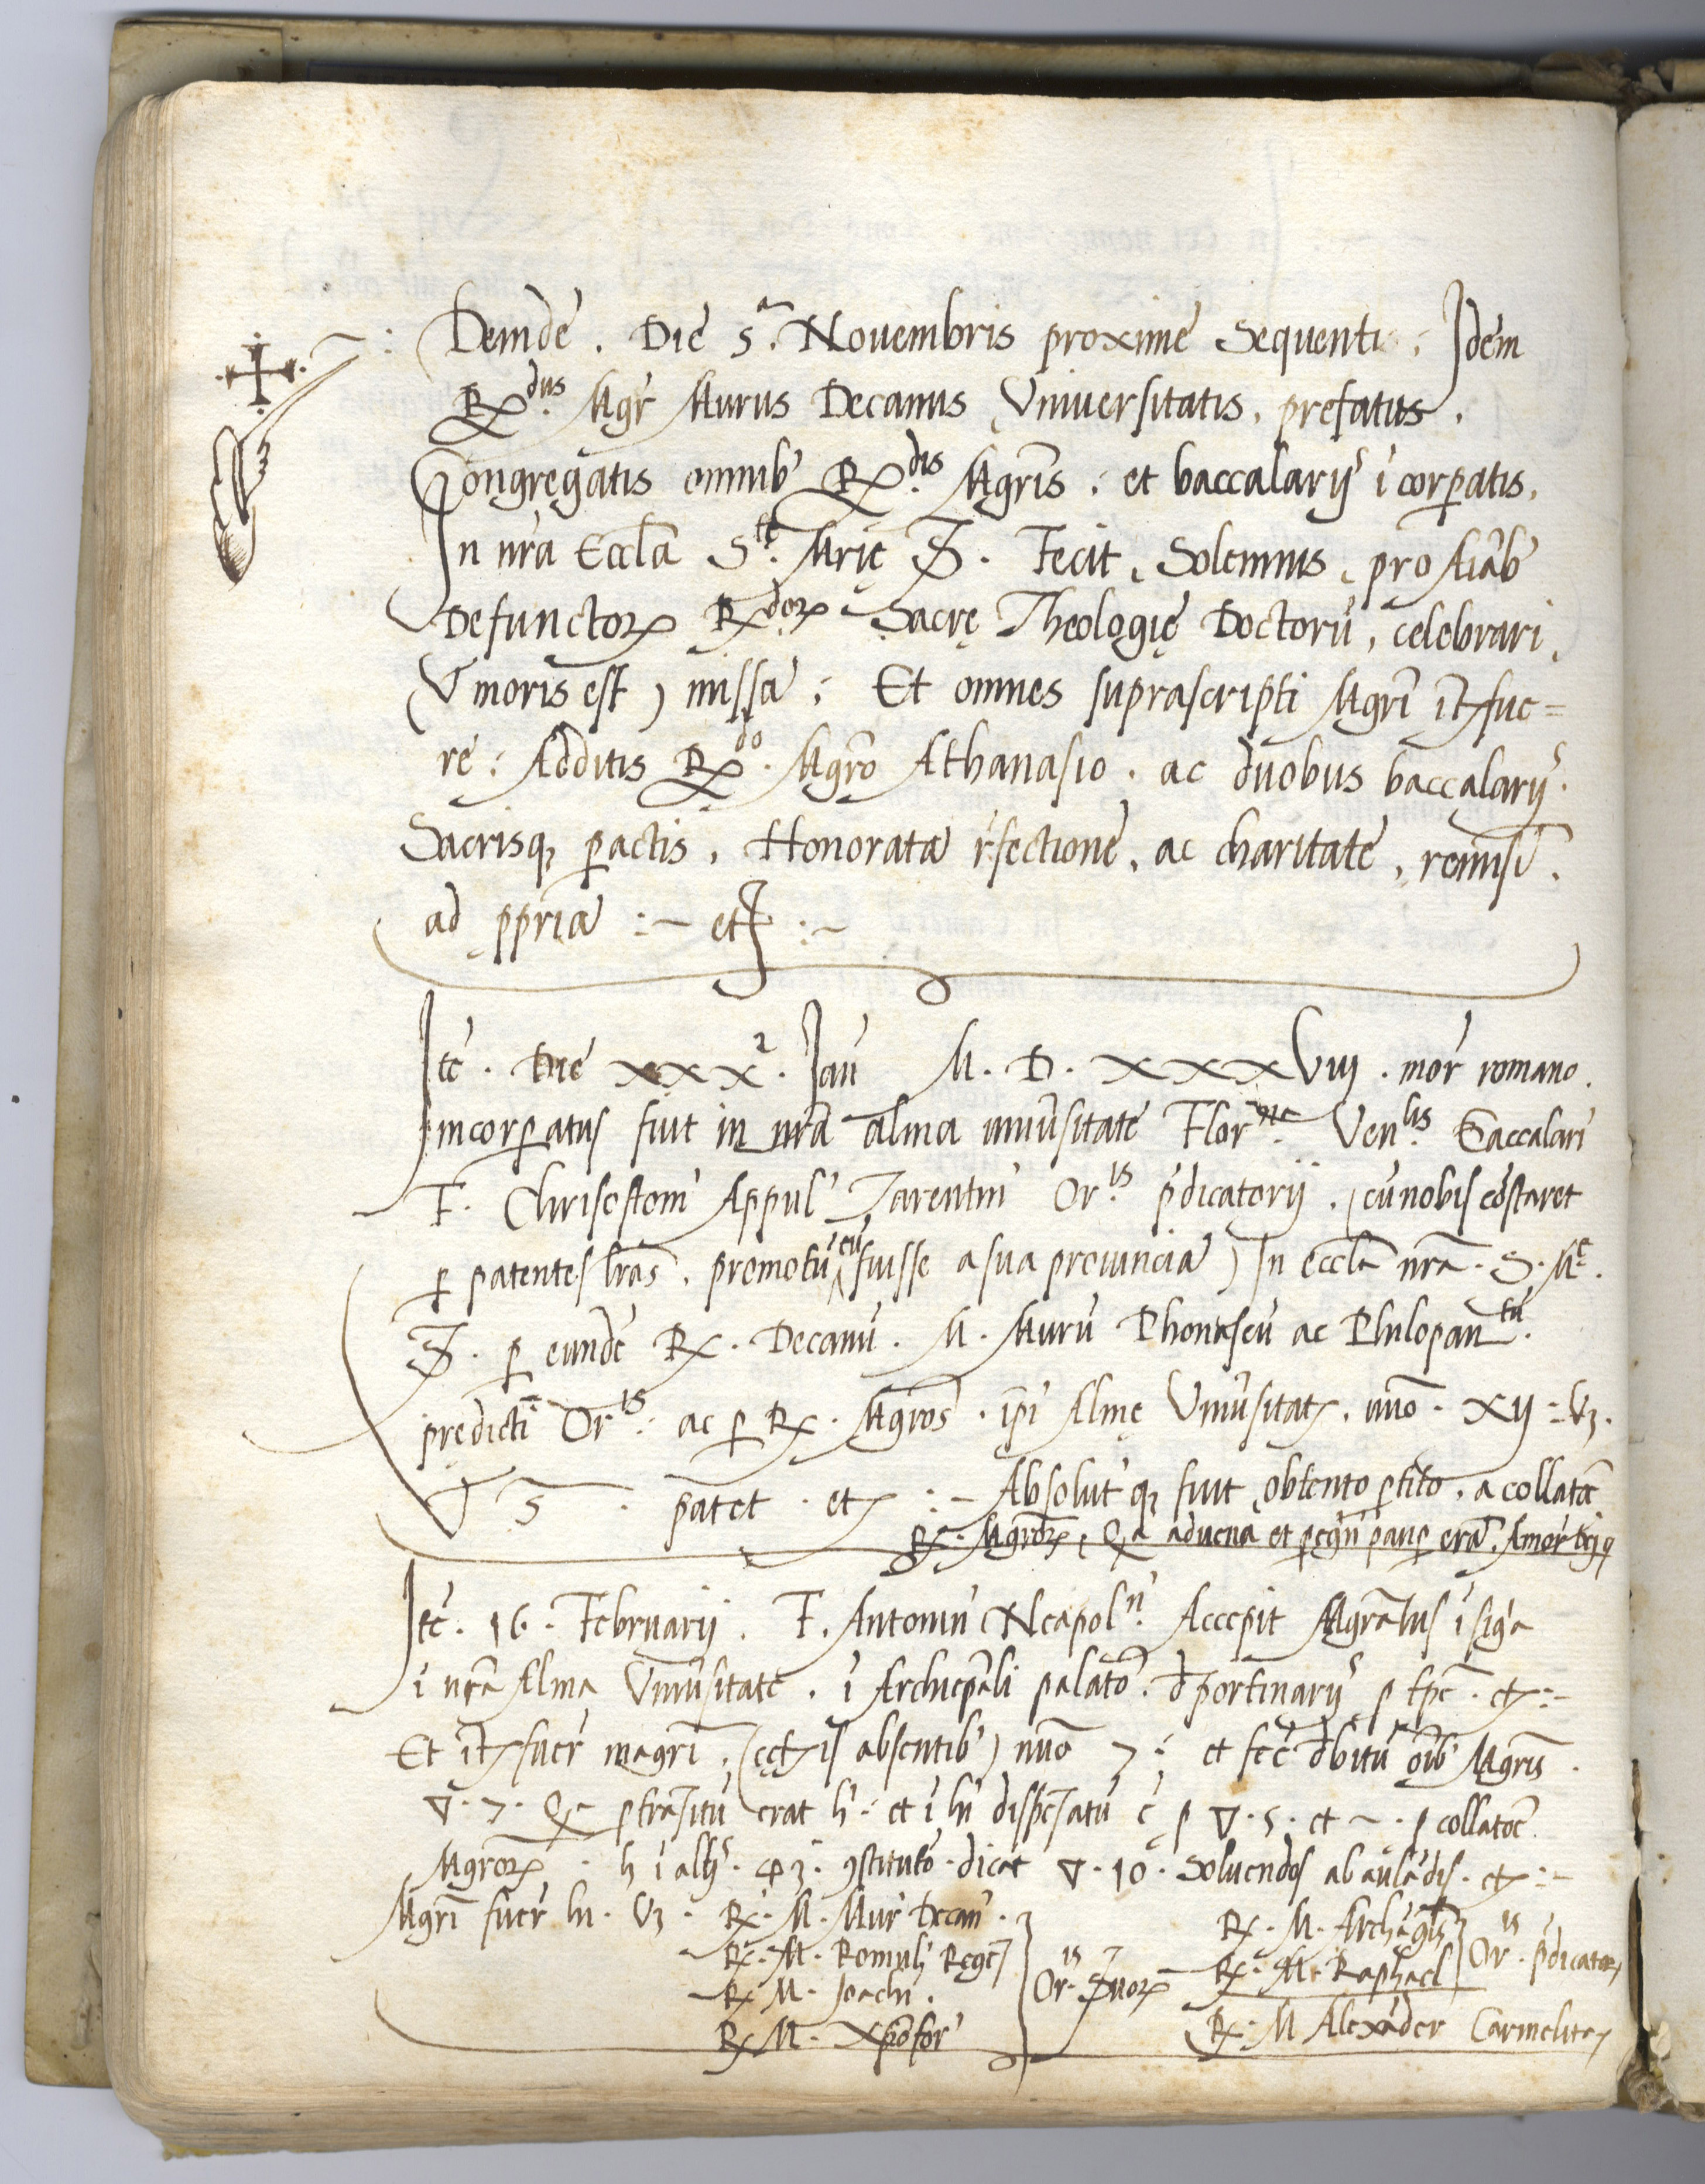 Deinde . Die 5ª. Novembris proxime Sequenti : Idem
Rx.dus Mgr̃ Maurus Decanus Universitatis, prefatus,
Congregatis omnib' Rx.dis Mgr̃is : et baccalarijs ĩcorꝑatis,
In nr̃a Eccl̃a S.tę Mrię S. Fecit, Solemnis, pro Aĩab'
Defunctoꝝ Rx.doꝝ Sacrę Theologię Doctorũ, celebrari,
(Ut moris est) missã : Et omnes suprascripti Mgr̃i ĩt̃fue=
re : Additis Rx.do Mgr̃o Athanasio . ac duobus baccalarijs.
Sacrisq; ꝑactis, Honorata r̃fectione, ac charitate, remisit.
ad ꝓpria :~ etc :~
Itẽ . Die xxxª . Jañ M . D . xxxviij . mor̃ romano .
Incorꝑatus fuit in nr̃a alma uniṽsitate Flor.ne Ven.lis Baccalari'
F. Chrisostom' Appul' Tarentin' Or.is p̃dicatorij . (cũ nobis cõstaret
ꝑ patentes lr̃as, promotũ eũ fuisse a sua provincia) In eccl̃a nr̃a . S . Me.
S . ꝑ eundẽ Rx . Decanũ . M . Maurũ Phonascũ ac Philopan.tũ
prędicti Or.is : ac ꝑ Rx . Mgr̃os . ip̃i Almę Uniṽsitatꝭ . nũo . xij : vꝫ.
∇ 5 . patet . etc :~ Absolut' q; fuit, obtento ꝑtito, a collatõe
Rx . Mgr̃oꝝ, Qa advena et ꝑegrin' pauꝑ erat. Amor
Itẽ . 16 . Februarij . F. Antonin' Neapol.n' Accepit Mgr̃atus ĩsigã
ĩ nr̃a Alma Uniṽsitate . ĩ Archiep̃ali palatõ . p tp̃e . etc :~
Et ĩt̃fuer̃ magr̃i, (cętis absentib') nũo 7 : et fec̃ dbitũ oĩb' Mgr̃is .
∇ . 7 . erat et ĩ disp̃satũ ẽ p ∇ . 5 . et ~ . p collatõẽ
Mgr̃oꝝ . ĩ alijs . ꝯstitutõ . dicat ∇ . 10 . Solvendos . etc :~
Mgr̃i fuer̃ hi . vꝫ . Rx . M . Maur' Decan' .
Rx . M . Romul'
Rx M . Joachi' .
Rx M . Xp̃ofor'
Or.is Svoꝝ
Rx . M . Archãgel'
Rx . M . Raphael
Or.is p̃dicatoꝝ
Rx . M Alexãder Carmelita